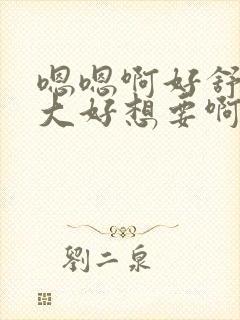 嗯嗯啊好舒
大好想要啊
劉二泉